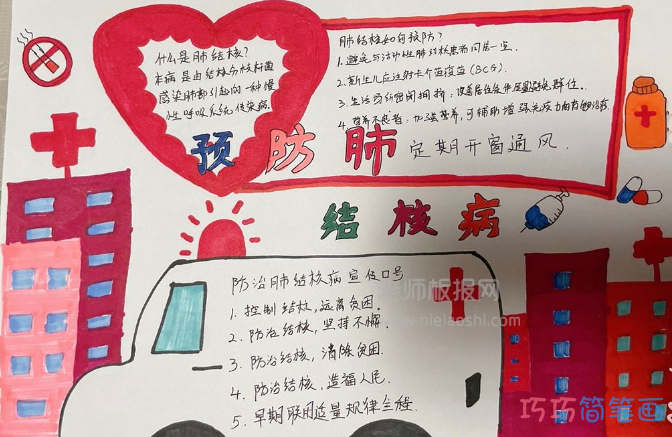 什么是肺结核?
本病是由结核分枝杆菌
感染肺部引起的一种慢
性呼吸系统传染病。
肺结核如何预防?
1.避免与活动性肺结核患者同居一室.
2.新生儿应注射卡介苗疫苗(BCG).
3.生活场所密闭拥挤:改善居住条件尽量避免群住。
4.营养不良者:加强营养,可辅助增强免疫力
定期开窗通风.
预防肺
结核病
防治肺结核病宣传口号
1.控制结核,远离贫困.
2.防治结核,坚持不懈.
3.防治结核,消除贫困.
4.防治结核,造福人民.
5.早期联用适量规律全程.
师板报网
nielaoshi.com
巧巧简笔画